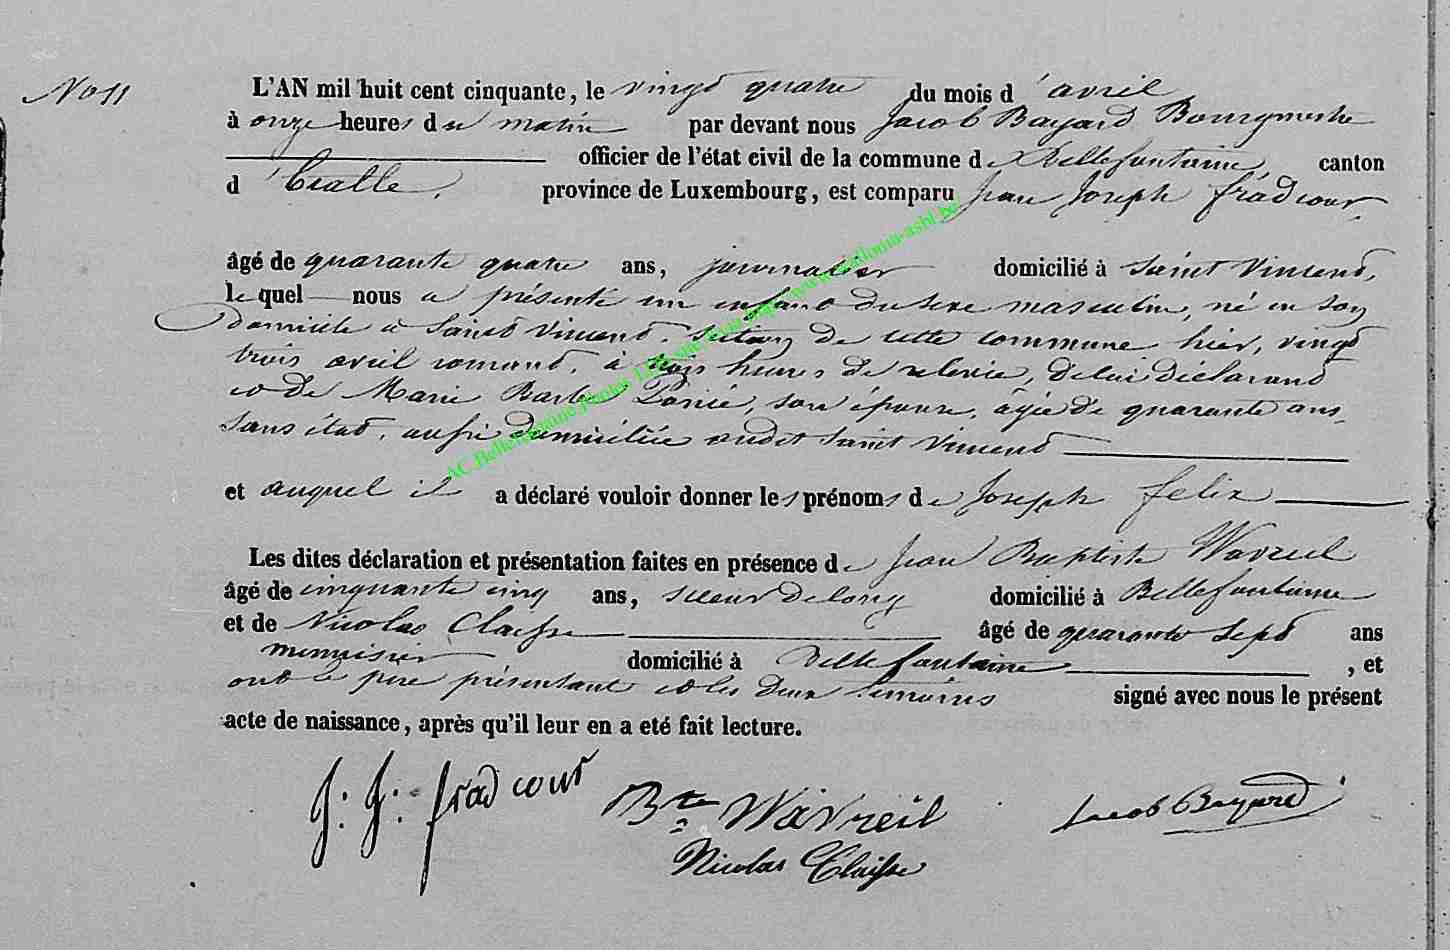 No 11
L'AN mil huit cent cinquante, le vingt quatre du mois d'avril
à onze heures du matin par devant nous Jacob Bayard Bourgmestre
officier de l'état civil de la commune de Bellefontaine, canton
d'Etalle, province de Luxembourg, est comparu Jean Joseph frâdcour,
âgé de quarante quatre ans, journalier domicilié à Saint Vincent,
lequel nous a présenté un enfant du sexe masculin, né en son
domicile à Saint Vincent, section de cette commune hier, vingt
trois avril courant, à trois heures de relevée, de lui déclarant
et de Marie Barbe, son épouse, âgée de quarante ans,
sans état, aussi domiciliée audit Saint Vincent
et auquel il a déclaré vouloir donner les prénoms de Joseph felix
Les dites déclaration et présentation faites en présence de Jean Baptiste Wavreil
âgé de cinquante cinq ans, scieur de long domicilié à Bellefontaine
et de Nicolas Claisse âgé de quarante sept ans
menuisier domicilié à Bellefontaine, et
ont le père présentant et les deux témoins signé avec nous le présent
acte de naissance, après qu'il leur en a eté fait lecture.
J: J: frâdcour Bte Wavreil Jacob Bayard
Nicolas Claisse